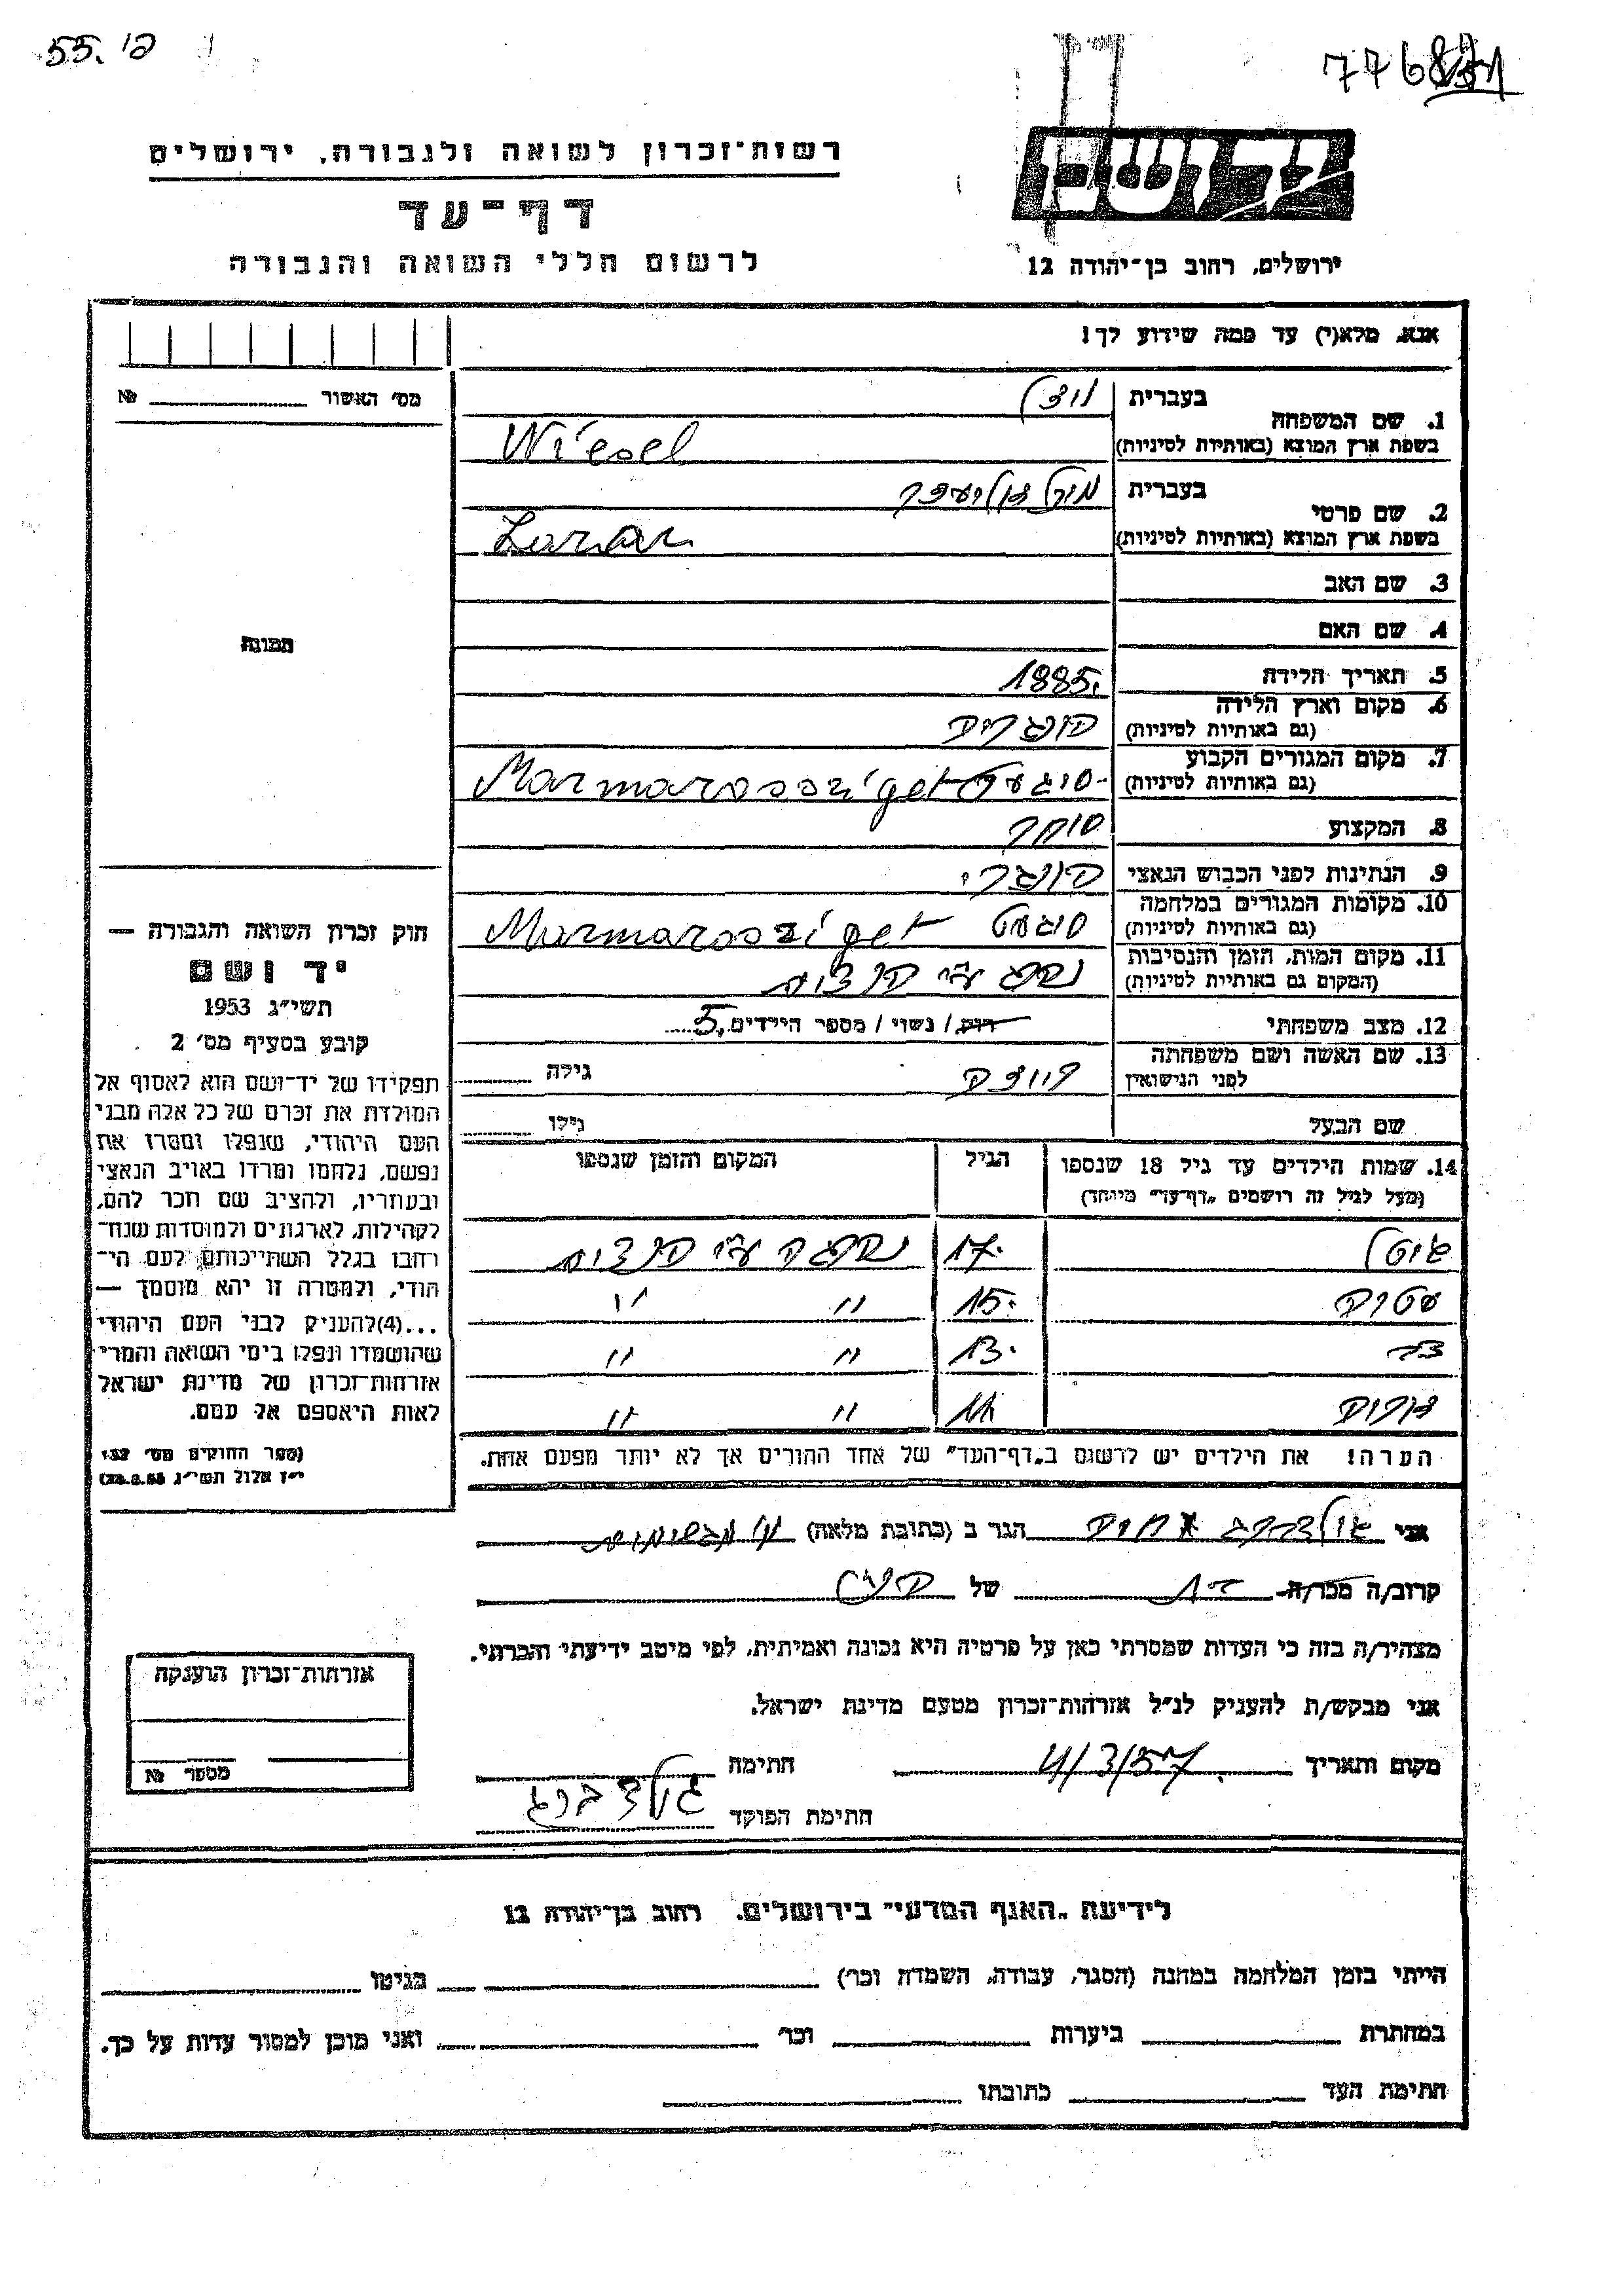 55. פי
776871
רשות־זכרון לשואה ולגבורה, ירושלים
דף־עד
לרשום חללי השואה והגבורה
ירושלים, רחוב בן־יהודה 12
אנא, מלא(י) עד כמה שידוע לך!
מס׳ האשור № 
1. שם המשפחה
בעברית
בשפת ארץ המוצא (באותיות לטיניות) Wiesel
2. שם פרטי
בעברית
בשפת ארץ המוצא (באותיות לטיניות)
3. שם האב
4. שם האם
תמונה
5. תאריך הלידה 1885.
6. מקום וארץ הלידה הונגריה
(גם באותיות לטיניות)
7. מקום המגורים הקבוע
(גם באותיות לטיניות) סיגעט Marmarossziget
8. המקצוע סוחר
9. הנתינות לפני הכבוש הנאצי הונגרי
10. מקומות המגורים במלחמה
(גם באותיות לטיניות) סיגעט Marmarossziget
11. מקום המות, הזמן והנסיבות
(המקום גם באותיות לטיניות) נספה ע״י הנצים
12. מצב משפחתי רווק / נשוי / מספר הילדים 5.
13. שם האשה ושם משפחתה
לפני הנישואין גילה
שם הבעל גילו
14. שמות הילדים עד גיל 18 שנספו הגיל המקום והזמן שנספו
(מעל לגיל זה רושמים „דף־עד״ מיוחד)
17. נספה ע״י הנצים
15. " "
13. " "
11 " "
הערה! את הילדים יש לרשום ב„דף־העד״ של אחד ההורים אך לא יותר מפעם אחת.
חוק זכרון השואה והגבורה —
יד ושם
תשי״ג 1953
קובע בסעיף מס׳ 2
תפקידו של יד־ושם הוא לאסוף אל
המולדת את זכרם של כל אלה מבני
העם היהודי, שנפלו ומסרו את
נפשם, נלחמו ומרדו באויב הנאצי
ובעוזריו, ולהציב שם וזכר להם,
לקהילות, לארגונים ולמוסדות שנח־
רבו בגלל השתייכותם לעם הי־
הודי, ולמטרה זו יהא מוסמך —
...(4) להעניק לבני העם היהודי
שהושמדו ונפלו בימי השואה והמרי
אזרחות־זכרון של מדינת ישראל
לאות היאספם אל עמם.
(ספר החוקים מס׳ 132
י״ז אלול תשי״ג 28.8.53)
אני גולדברג הגר ב (כתובת מלאה)
קרוב/ה מכר/ה של
מצהיר/ה בזה כי העדות שמסרתי כאן על פרטיה היא נכונה ואמיתית, לפי מיטב ידיעתי והכרתי.
אני מבקש/ת להעניק לנ״ל אזרחות־זכרון מטעם מדינת ישראל.
מקום ותאריך 4/3/57. חתימה
חתימת הפוקד גולדברג
אזרחות־זכרון הוענקה
מספר №
לידיעת „האגף המדעי״ בירושלים, רחוב בן־יהודה 12
הייתי בזמן המלחמה במחנה (הסגר, עבודה, השמדה וכו׳) בגיטו
במחתרת ביערות וכו׳ ואני מוכן למסור עדות על כך.
חתימת העד כתובתו